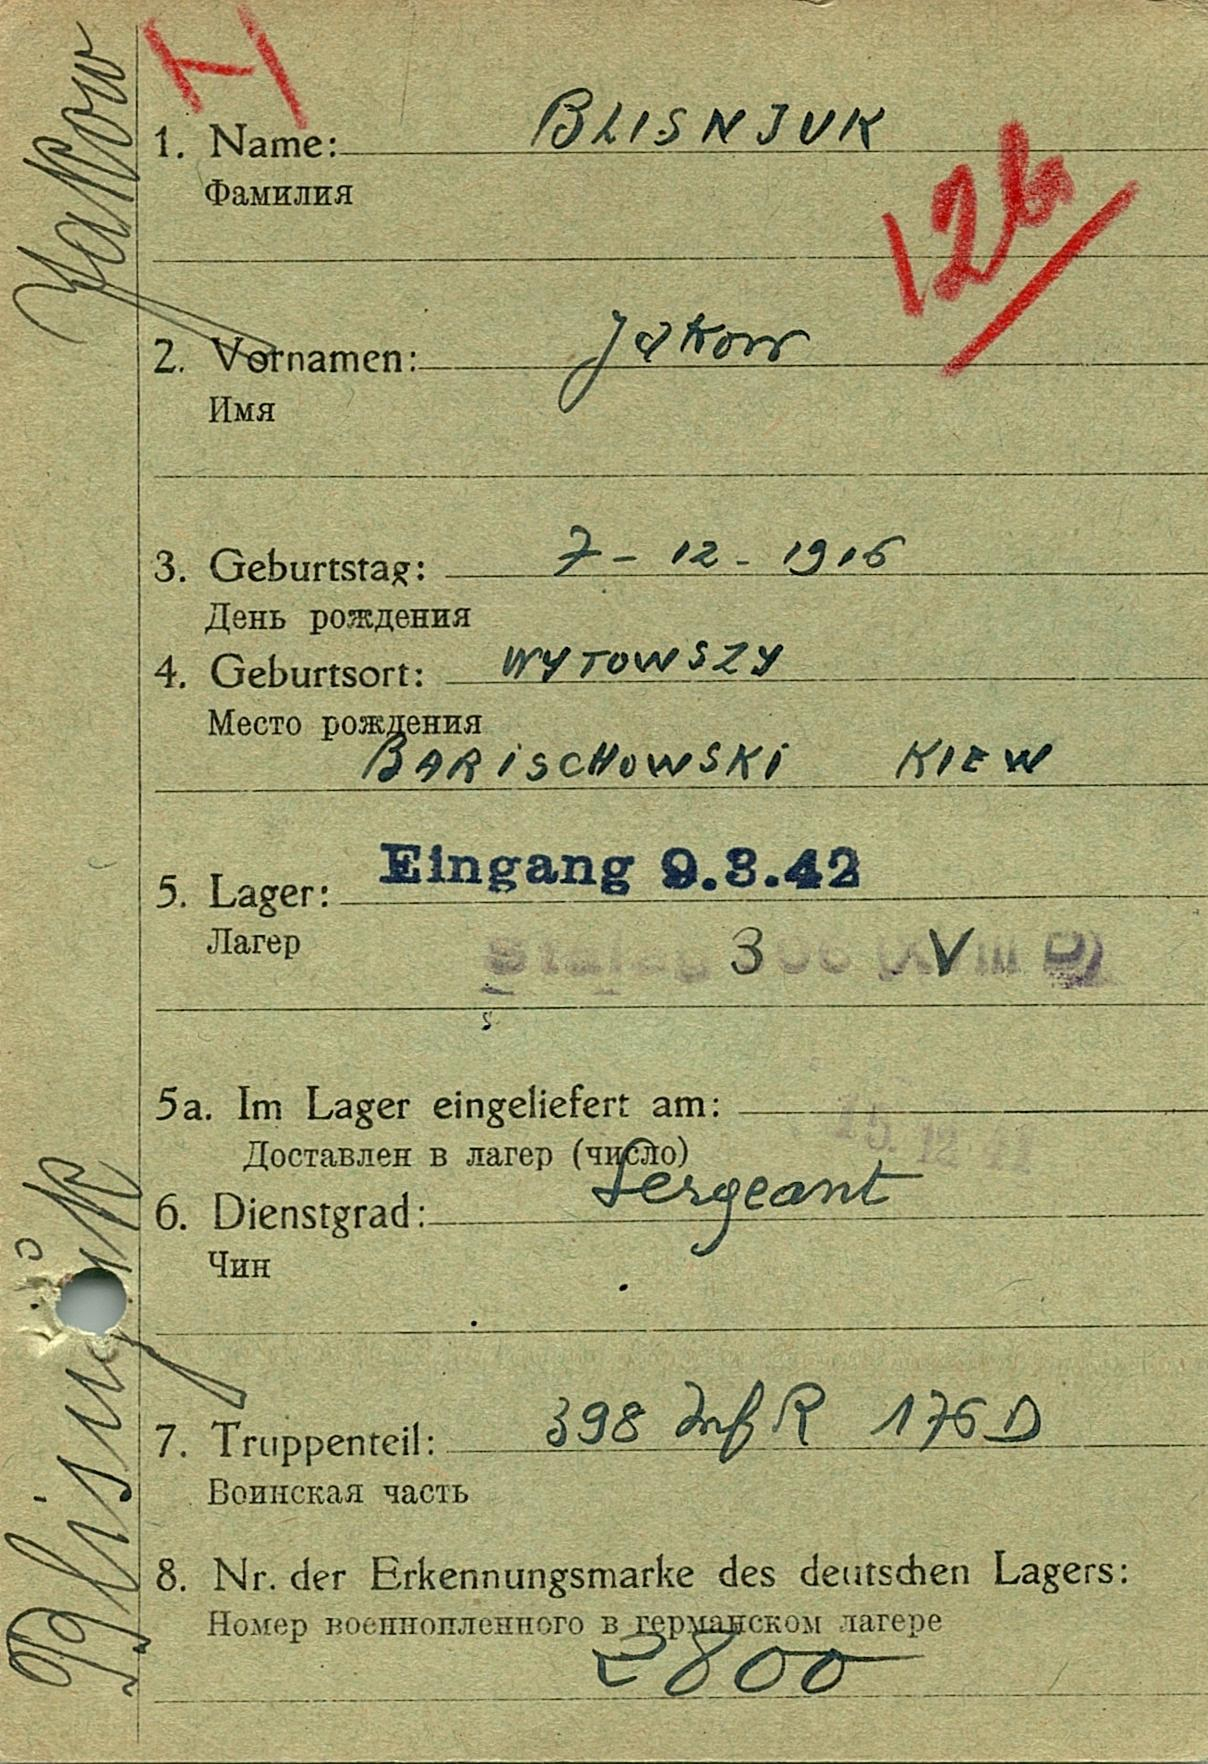 Blisnjuk Jakow
12b
1. Name: BLISNJUK
Фамилия
2. Vornamen: Jakow
Имя
3. Geburtstag: 7-12-1916
День рождения
4. Geburtsort: WYTOWSZY
Место рождения
BARISCHOWSKI KIEW
5. Lager: Eingang 9.3.42
Лагер
Stalag 3 V D)
5a. Im Lager eingeliefert am: 15.12.41
Доставлен в лагер (число)
6. Dienstgrad: Sergeant
Чин
7. Truppenteil: 398 Inf R 176 D
Воинская часть
8. Nr. der Erkennungsmarke des deutschen Lagers:
Номер военнопленного в германском лагере
2800